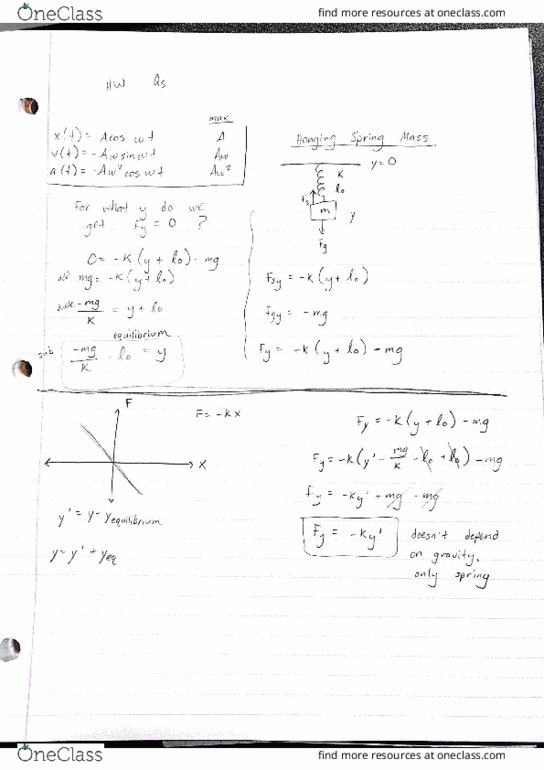 OneClass
find more resources at oneclass.com
HW Qs
max
x(t) = A cos ωt A
v(t) = -Aω sin ωt Aω
a(t) = -Aω² cos ωt Aω²
Hanging Spring Mass
y=0
K
l₀
Fs
m
y
Fg
For what y do we
get Fy = 0 ?
0 = -K(y + l₀) - mg
add mg = -K(y + l₀)
-mg/K = y + l₀
equilibrium
sub -mg/K - l₀ = y
Fsy = -K(y + l₀)
Fgy = -mg
Fy = -K(y + l₀) - mg
F
F = -Kx
x
y' = y - yequilibrium
y = y' + yeq
Fy = -K(y + l₀) - mg
Fy = -K(y' - mg/K - l₀ + l₀) - mg
Fy = -Ky' + mg - mg
Fy = -Ky' doesn't depend
on gravity,
only spring
OneClass
find more resources at oneclass.com